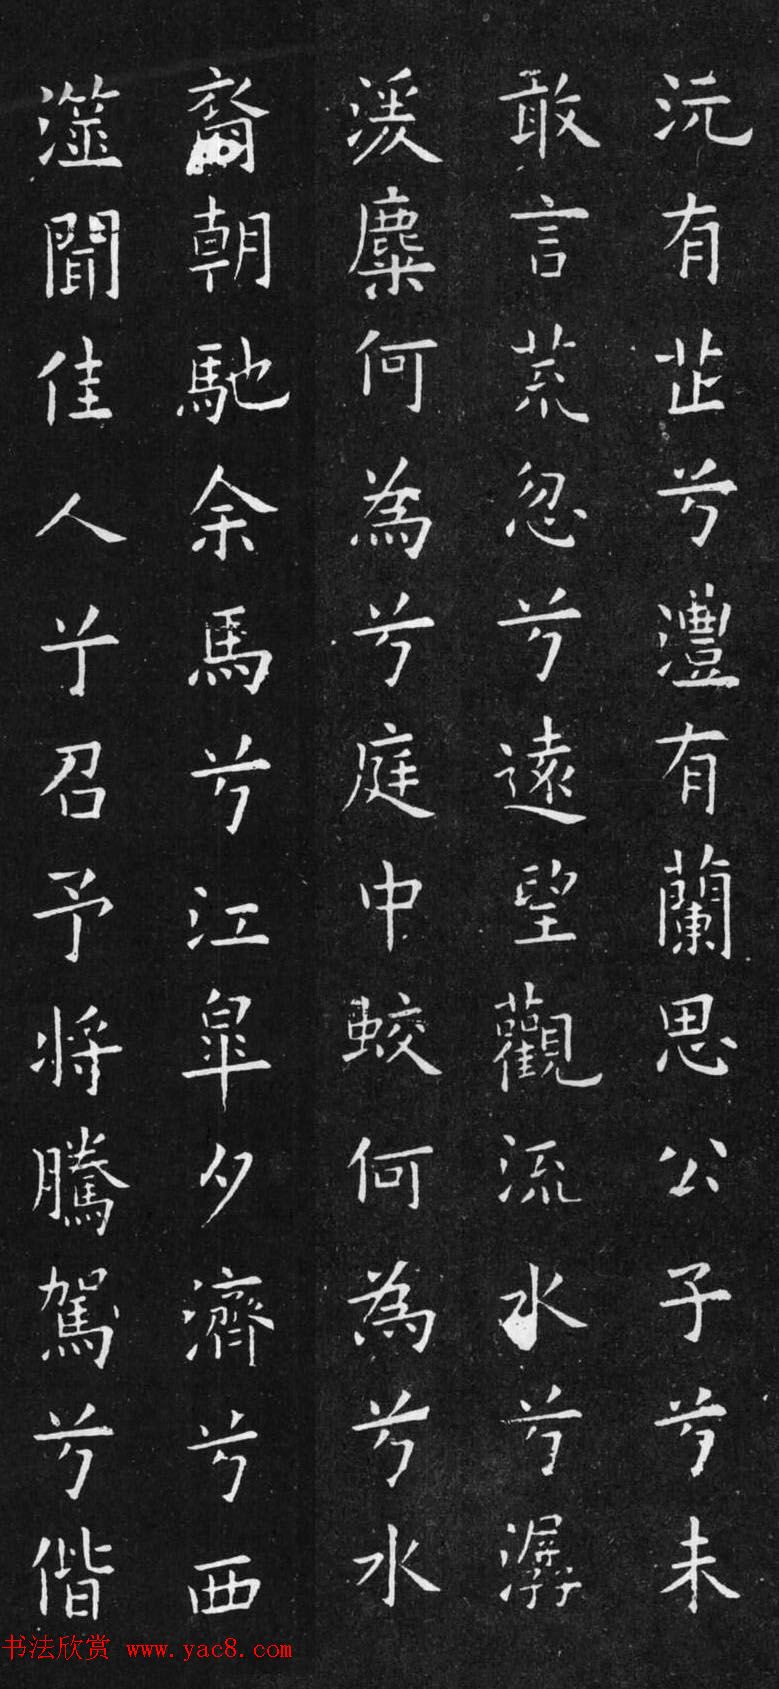 沅有芷兮澧有蘭思公子兮未
敢言荒忽兮遠望觀流水兮潺
湲麋何為兮庭中蛟何為兮水
裔朝馳余馬兮江皐夕濟兮西
澨聞佳人兮召予將騰駕兮偕
书法欣赏 www.yac8.com